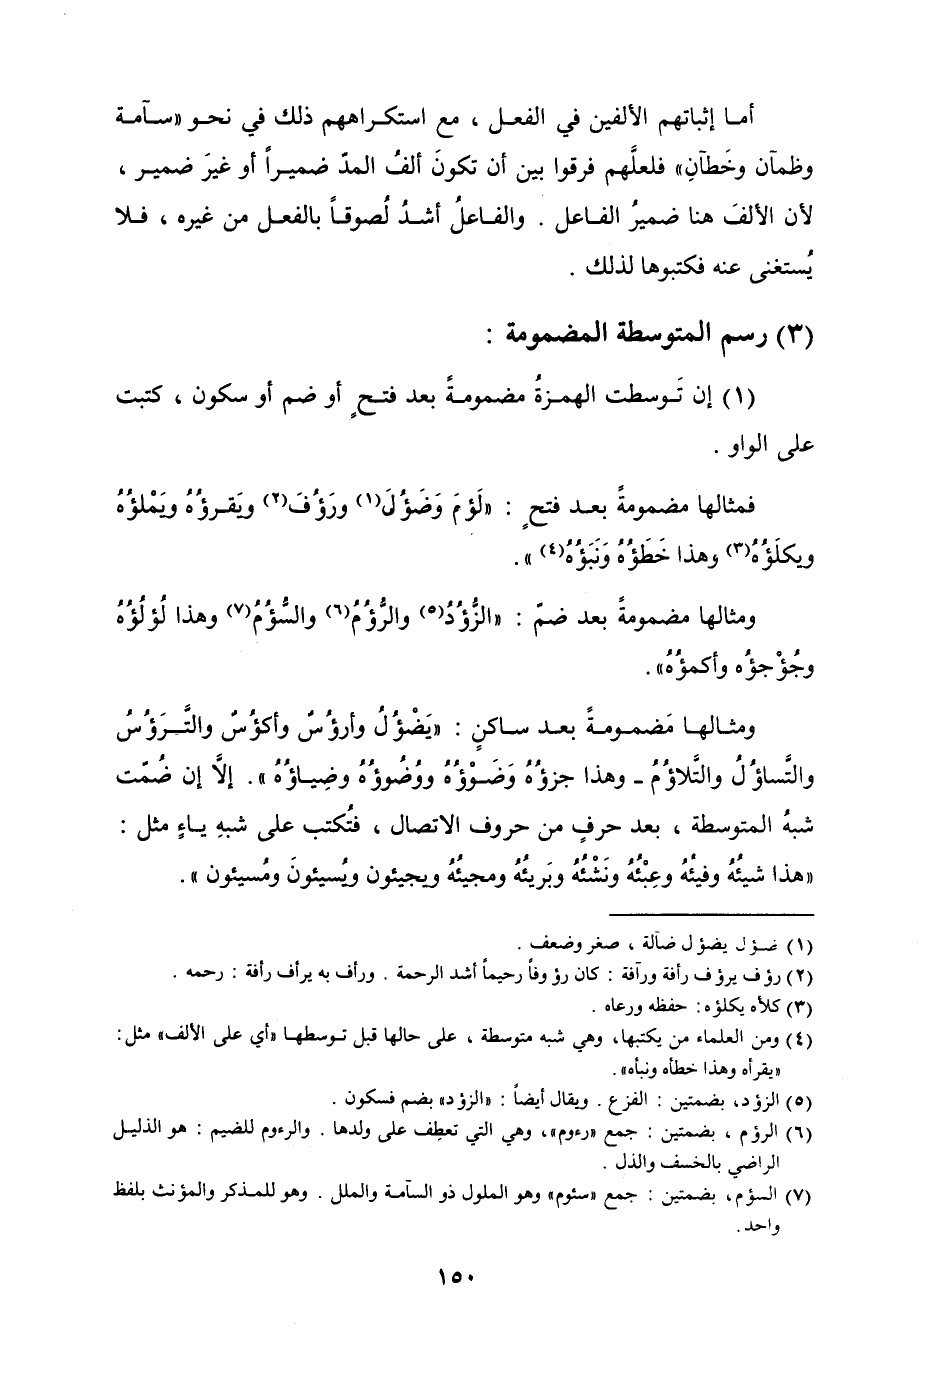 أما إثباتهم الألفين في الفعل ، مع استكراههم ذلك في نحو «سآمة
وظمآن وخَطآنِ» فلعلَّهم فرقوا بين أن تكونَ ألفُ المدّ ضميراً أو غيرَ ضمير ،
لأن الألفَ هنا ضميرُ الفاعل . والفاعلُ أشدُ لُصوقاً بالفعل من غيره ، فلا
يُستغنى عنه فكتبوها لذلك .
(٣) رسم المتوسطة المضمومة :
(١) إن تَوسطت الهمزةُ مضمومةً بعد فتحٍ أو ضم أو سكون ، كتبت
على الواو .
فمثالها مضمومةً بعد فتحٍ : «لَؤمَ وَضَؤُلَ(١) ورَؤُفَ(٢) ويَقرؤُهُ ويَمْلؤُهُ
ويكلَؤُهُ(٣) وهذا خَطَؤُهُ وَنَبَؤُهُ(٤) ».
ومثالها مضمومةً بعد ضمّ : «الزُّؤُدُ(٥) والرُّؤُمُ(٦) والسُّؤُمُ(٧) وهذا لُؤلُؤُهُ
وجُؤْجؤُه وأكمؤُهُ».
ومثالها مَضمومةً بعد ساكنٍ : «يَضْؤُلُ وأرؤُسٌ وأكؤُسٌ والتَّرَؤُسُ
والتَّساؤُلُ والتَّلاؤُمُ ـ وهذا جزؤُهُ وَضَوْؤُهُ ووُضُوؤُهُ وضِياؤُهُ ». إلَّا إن ضُمّت
شبهُ المتوسطة ، بعد حرفٍ من حروف الاتصال ، فتُكتب على شبهِ ياءٍ مثل :
«هذا شيئُهُ وفيئُهُ وعِبْئُهُ ونَشْئُهُ وبَريئُهُ ومجيئُهُ ويجيئون ويُسيئونَ ومُسيئون ».
(١) ضؤل يضؤل ضآلة ، صغر وضعف .
(٢) رؤف يرؤف رأفة ورآفة : كان رؤوفاً رحيماً أشد الرحمة . ورأف به يرأف رأفة : رحمه .
(٣) كلأه يكلؤه: حفظه ورعاه .
(٤) ومن العلماء من يكتبها، وهي شبه متوسطة ، على حالها قبل توسطها «أي على الألف» مثل:
«يقرأه وهذا خطأه ونبأه».
(٥) الزؤد، بضمتين : الفزع . ويقال أيضاً : «الزؤد» بضم فسكون .
(٦) الرؤم ، بضمتين : جمع «رءوم»، وهي التي تعطف على ولدها . والرءوم للضيم : هو الذليل
الراضي بالخسف والذل .
(٧) السؤم، بضمتين : جمع «سئوم» وهو الملول ذو السآمة والملل . وهو للمذكر والمؤنث بلفظ
واحد.
١٥٠